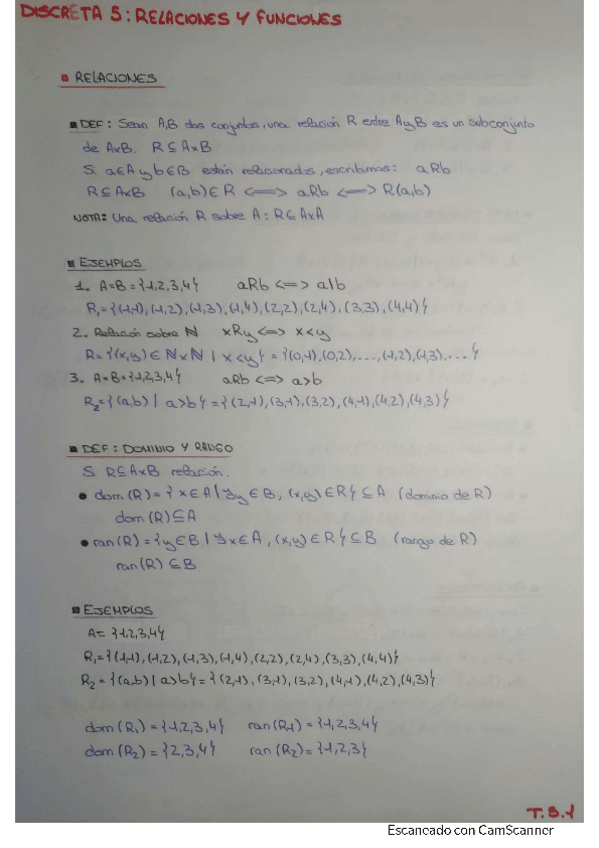 DISCRETA 5: RELACIONES Y FUNCIONES
RELACIONES
DEF: Sean A,B dos conjuntos, una relación R entre A y B es un subconjunto
de AxB. R⊆AxB
Si a∈A y b∈B están relacionados, escribimos: aRb
R⊆AxB (a,b)∈R <=> aRb <=> R(a,b)
NOTA: Una relación R sobre A: R⊆AxA
EJEMPLOS
1. A=B={1,2,3,4} aRb <=> a|b
R₁={(1,1),(1,2),(1,3),(1,4),(2,2),(2,4),(3,3),(4,4)}
2. Relación sobre ℕ xRy <=> x<y
R={(x,y)∈ℕxℕ | x<y}={(0,1),(0,2),...,(1,2),(1,3),...}
3. A=B={1,2,3,4} aRb <=> a>b
R₂={(a,b) | a>b}={(2,1),(3,1),(3,2),(4,1),(4,2),(4,3)}
DEF: DOMINIO Y RANGO
Si R⊆AxB relación.
• dom(R)={x∈A | ∃y∈B, (x,y)∈R}⊆A (dominio de R)
dom(R)⊆A
• ran(R)={y∈B | ∃x∈A, (x,y)∈R}⊆B (rango de R)
ran(R)⊆B
EJEMPLOS
A={1,2,3,4}
R₁={(1,1),(1,2),(1,3),(1,4),(2,2),(2,4),(3,3),(4,4)}
R₂={(a,b) | a>b}={(2,1),(3,1),(3,2),(4,1),(4,2),(4,3)}
dom(R₁)={1,2,3,4} ran(R₁)={1,2,3,4}
dom(R₂)={2,3,4} ran(R₂)={1,2,3}
T.5.1
Escaneado con CamScanner